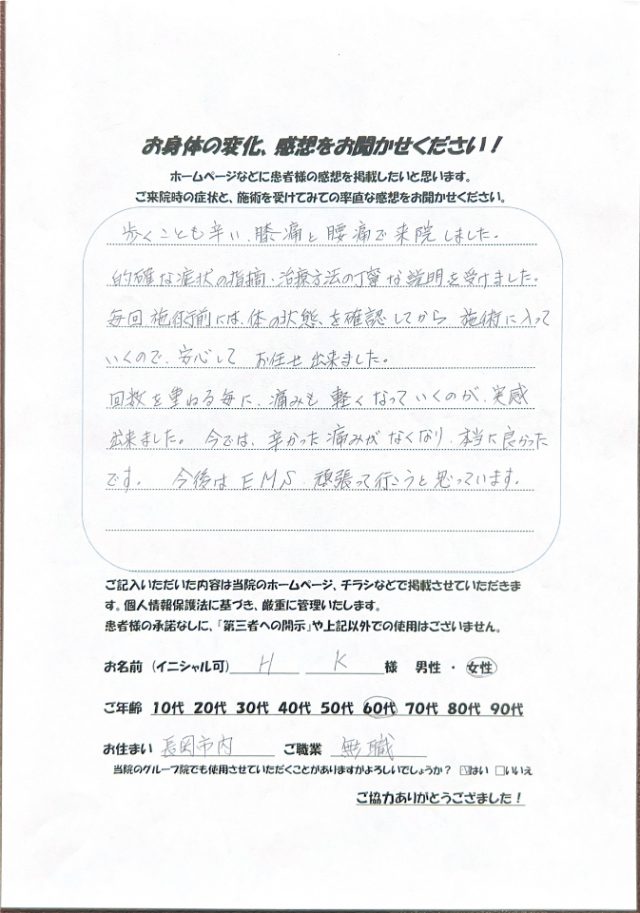 お身体の変化、感想をお聞かせください!
ホームページなどに患者様の感想を掲載したいと思います。
ご来院時の症状と、施術を受けてみての率直な感想をお聞かせください。
歩くことも辛い、膝痛と腰痛で来院しました。
的確な症状の指摘・治療方法の丁寧な説明を受けました。
毎回施術前には、体の状態を確認してから 施術に入って
いくので、安心して お任せ出来ました。
回数を重ねる毎に、痛みも 軽くなっていくのが、実感
出来ました。 今では、辛かった痛みがなくなり、本当に良かった
です。 今後は EMS、頑張って行こうと思っています。
ご記入いただいた内容は当院のホームページ、チラシなどで掲載させていただきま
す。個人情報保護法に基づき、厳重に管理いたします。
患者様の承諾なしに、「第三者への開示」や上記以外での使用はございません。
お名前(イニシャル可) H K 様 男性 ・ 女性
ご年齢 10代 20代 30代 40代 50代 60代 70代 80代 90代
お住まい 長岡市内 ご職業 無職
当院のグループ院でも使用させていただくことがありますがよろしいでしょうか? ☑はい □いいえ
ご協力ありがとうござました!